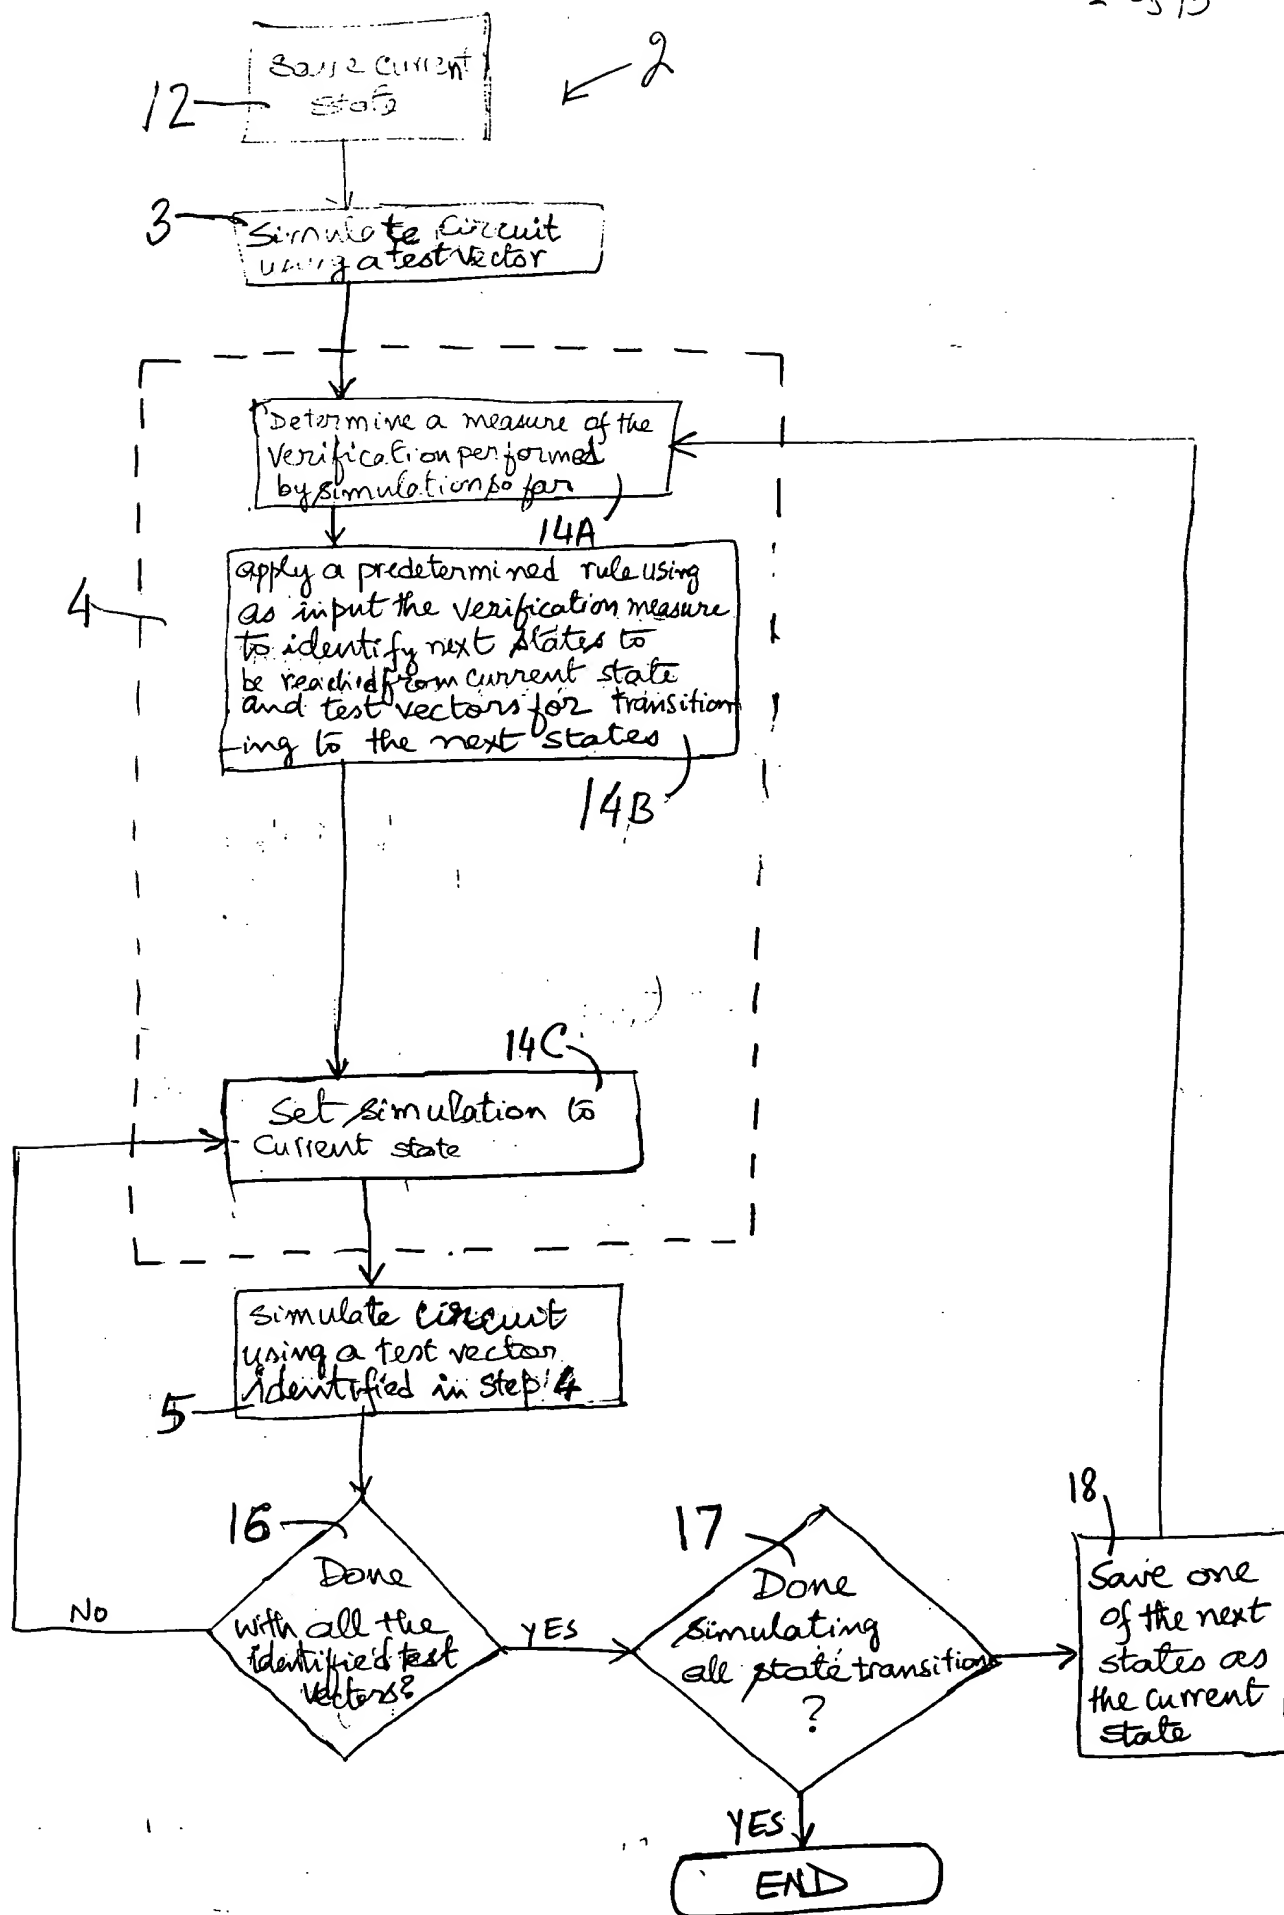 2
Save current
state
12
3
Simulate Circuit
using a test vector
Determine a measure of the
verification performed
by simulation so far
14A
apply a predetermined rule using
as input the verification measure
to identify next states to
be reached from current state
and test vectors for transition
-ing to the next states
4
14B
14C
Set simulation to
Current state
Simulate circuit
using a test vector
identified in step 4
5
16
Done
with all the
identified test
vectors?
No
YES
17
Done
simulating
all state transitions
?
YES
END
18
Save one
of the next
states as
the current
state